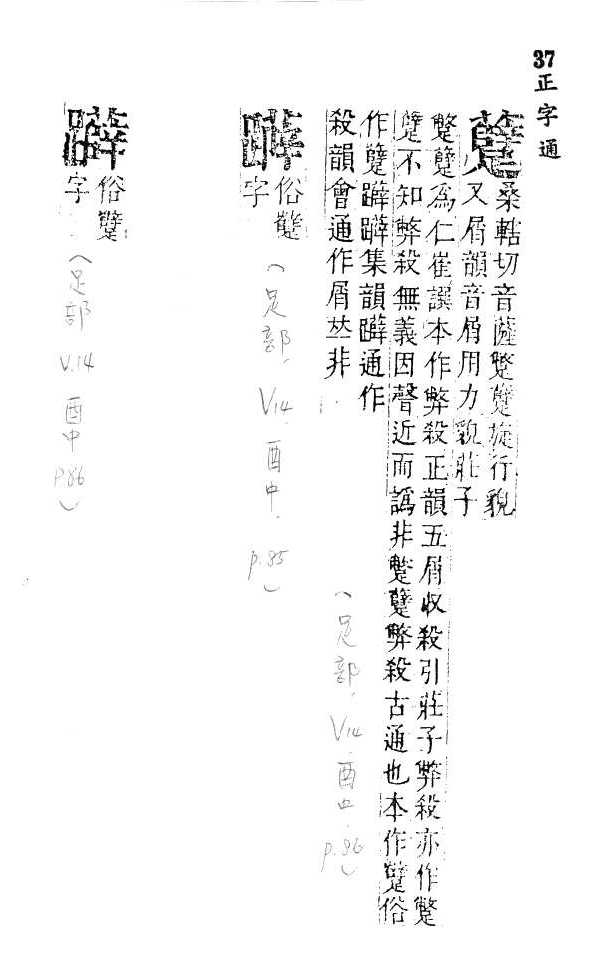 37正字通
躠
桑轄切音薩蹩躠旋行貌
又屑韻音屑用力貌莊子
蹩躠爲仁崔譔本作弊殺正韻五屑收殺引莊子弊殺亦作蹩
躠不知弊殺無義因聲近而譌非蹩躠弊殺古通也本作躠俗
作躠集韻通作
殺韻會通作屑𠀤非
(足部, V14 酉中 p.86)
俗躠
字
(足部, V14, 酉中, p.85)
俗躠
字
(足部 V.14 酉中 p.86)